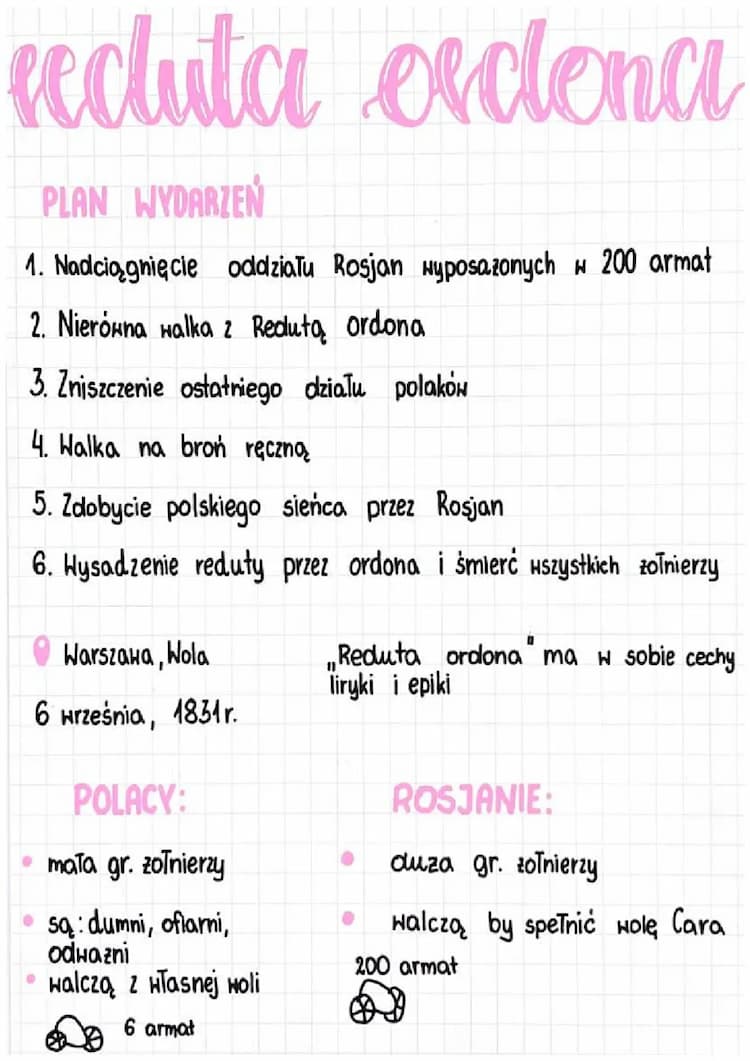 reduta ordona
PLAN WYDARZEŃ
1. Nadciągnięcie oddziału Rosjan wyposażonych w 200 armat
2. Nierówna walka z Redutą ordona
3. Zniszczenie ostatniego działu polaków
4. Walka na broń ręczną
5. Zdobycie polskiego sieńca przez Rosjan
6. Wysadzenie reduty przez ordona i śmierć wszystkich żołnierzy
Warszawa, Wola
6 września, 1831r.
„Reduta ordona" ma w sobie cechy
liryki i epiki
POLACY:
mała gr. żołnierzy
są: dumni, ofiarni,
odważni
walczą z własnej woli
6 armat
ROSJANIE:
duża gr. żołnierzy
walczą by spełnić wolę Cara
200 armat